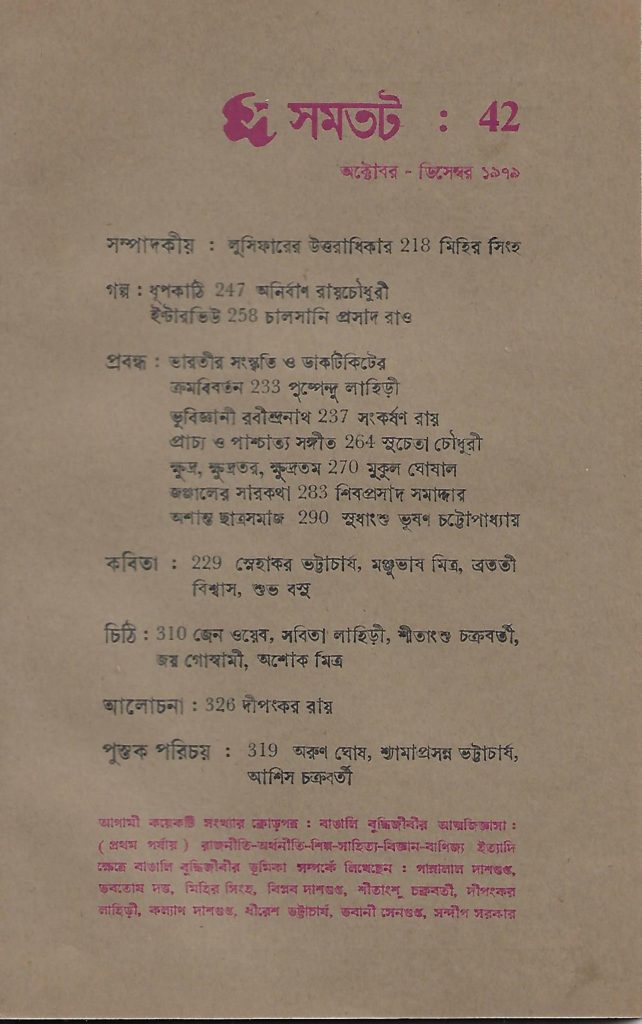 সমতট : 42
অক্টোবর - ডিসেম্বর ১৯৭৯
সম্পাদকীয় : লুসিফারের উত্তরাধিকার 218 মিহির সিংহ
গল্প : ধূপকাঠি 247 অনির্বাণ রায়চৌধুরী
ইন্টারভিউ 258 চালসানি প্রসাদ রাও
প্রবন্ধ : ভারতীর সংস্কৃতি ও ডাকটিকিটের
ক্রমবিবর্তন 233 পুষ্পেন্দু লাহিড়ী
ভূবিজ্ঞানী রবীন্দ্রনাথ 237 সংকর্ষণ রায়
প্রাচ্য ও পাশ্চাত্য সঙ্গীত 264 সুচেতা চৌধুরী
ক্ষুদ্র, ক্ষুদ্রতর, ক্ষুদ্রতম 270 মুকুল ঘোষাল
জঞ্জালের সারকথা 283 শিবপ্রসাদ সমাদ্দার
অশান্ত ছাত্রসমাজ 290 সুধাংশু ভূষণ চট্টোপাধ্যায়
কবিতা : 229 স্নেহাকর ভট্টাচার্য, মঞ্জুভাষ মিত্র, ব্রততী
বিশ্বাস, শুভ বসু
চিঠি : 310 জেন ওয়েব, সবিতা লাহিড়ী, শীতাংশু চক্রবর্তী,
জয় গোস্বামী, অশোক মিত্র
আলোচনা : 326 দীপংকর রায়
পুস্তক পরিচয় : 319 অরুণ ঘোষ, শ্যামাপ্রসন্ন ভট্টাচার্য,
আশিস চক্রবর্তী
আগামী কয়েকটি সংখ্যার ক্রোড়পত্র : বাঙালি বুদ্ধিজীবীর আত্মজিজ্ঞাসা :
( প্রথম পর্যায় ) রাজনীতি-অর্থনীতি-শিল্প-সাহিত্য-বিজ্ঞান-বাণিজ্য ইত্যাদি
ক্ষেত্রে বাঙালি বুদ্ধিজীবীর ভূমিকা সম্পর্কে লিখেছেন : পান্নালাল দাশগুপ্ত,
ভবতোষ দত্ত, মিহির সিংহ, বিপ্লব দাশগুপ্ত, শীতাংশু চক্রবর্তী, দীপংকর
লাহিড়ী, কল্যাণ দাশগুপ্ত, ধীরেশ ভট্টাচার্য, ভবানী সেনগুপ্ত, সন্দীপ সরকার